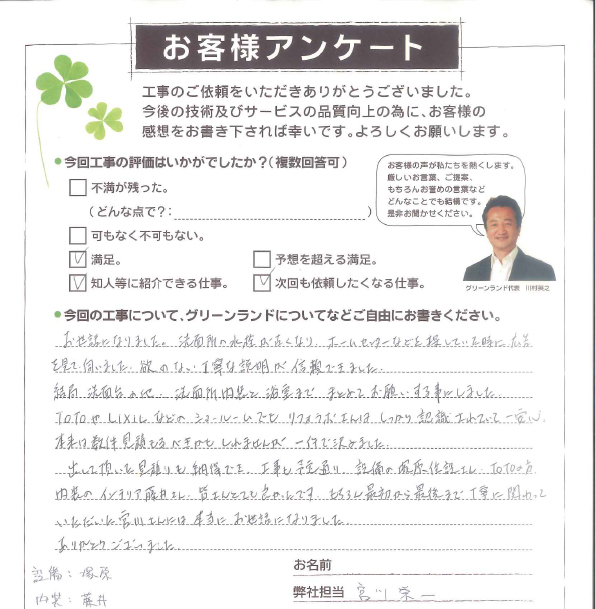 お客様アンケート
工事のご依頼をいただきありがとうございました。
今後の技術及びサービスの品質向上の為に、お客様の
感想をお書き下されば幸いです。よろしくお願いします。
今回工事の評価はいかがでしたか？(複数回答可)
不満が残った。
(どんな点で？: )
可もなく不可もない。
満足。
予想を超える満足。
知人等に紹介できる仕事。
次回も依頼したくなる仕事。
お客様の声が私たちを熱くします。
厳しいお言葉、ご提案、
もちろんお誉めの言葉など
どんなことでも結構です。
是非お聞かせください。
グリーンランド代表 川村英之
今回の工事について、グリーンランドについてなどご自由にお書きください。
お世話になりました。洗面所の水栓が古くなり、ホームセンターなどを探していた時に広告
を見て伺いました。欲のない丁寧な説明が信頼できました。
結局、洗面台の他、洗面所内装と浴室まで まとめてお願いする事にしました。
TOTOやLIXILなどのショールームでも リフォラボさんは しっかり認識されていて 一安心。
本来は数件見積もるべきかもしれませんが 一件で決めました。
出して頂いた見積りも納得でき、工事も予定通り、設備の塚原住設さん、TOTOの方
内装のインテリア藤井さん、皆さんとても良かったです。もちろん最初から最後まで丁寧に関わって
いただいた宮川さんには 本当に お世話になりました。
ありがとうございました。
お名前
設備：塚原
弊社担当 宮川 栄一
内装：藤井